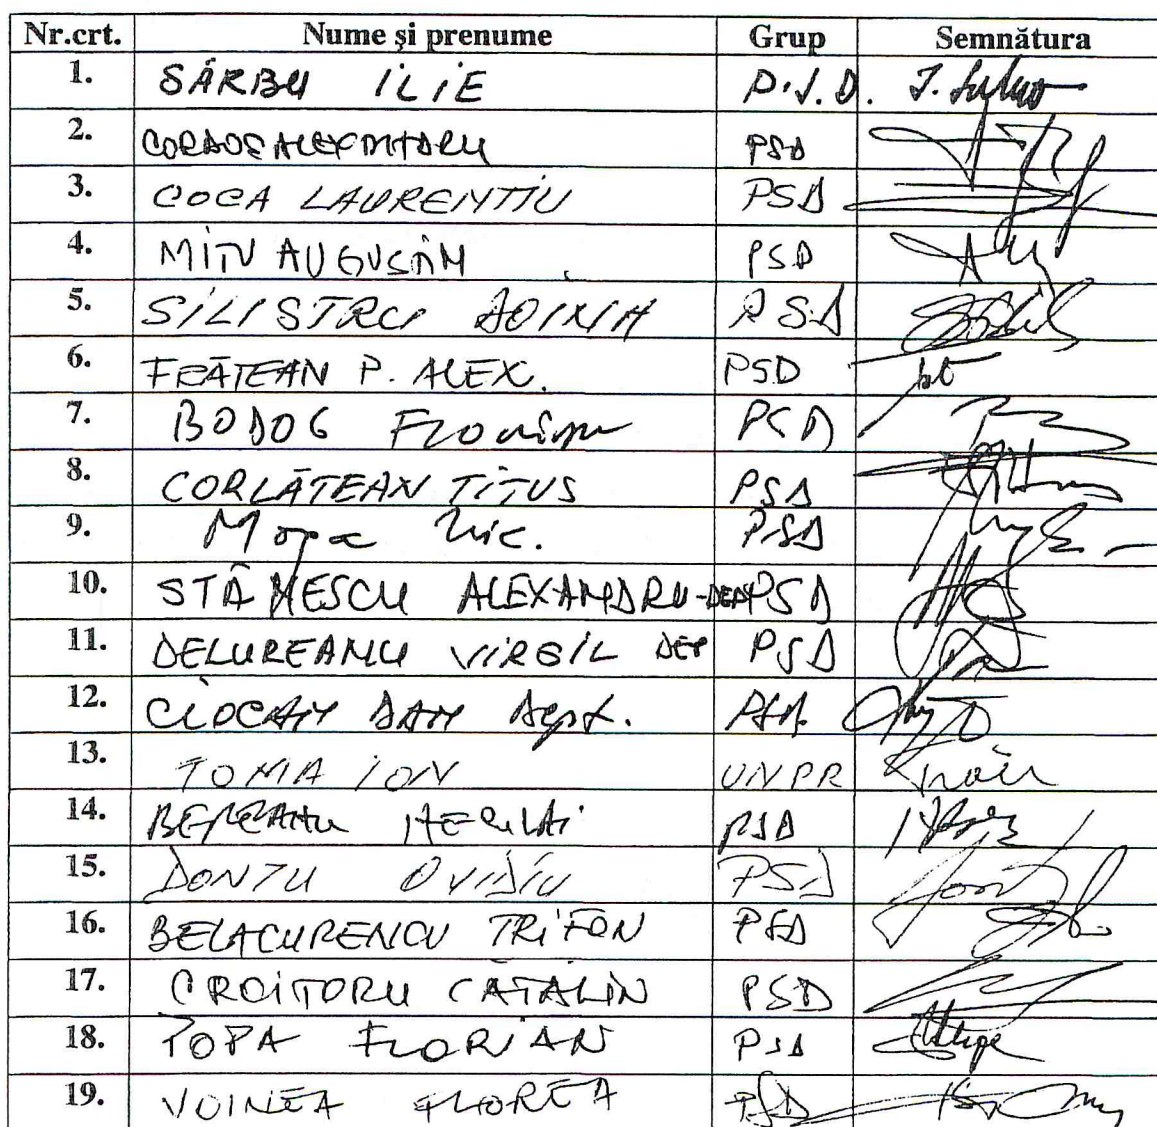 Nr.crt. Nume şi prenume Grup Semnătura
1. SÂRBU ILIE P.S.D.
2. CORDOŞ ALEXANDRU PSD
3. COCA LAURENŢIU PSD
4. MITU AUGUSTIN PSD
5. SILISTRU DOINA PSD
6. FRĂTEAN P. ALEX. PSD
7. BODOG Florian PSD
8. CORLĂŢEAN TITUS PSD
9. Moga Nic. PSD
10. STĂNESCU ALEXANDRU-DEP PSD
11. DELUREANU VIRGIL DEP PSD
12. CIOCAN DAN dept. PSD
13. TOMA ION UNPR
14. PSD
15. DONŢU OVIDIU PSD
16. BELACURENCU TRIFON PSD
17. CROITORU CĂTĂLIN PSD
18. POPA FLORIAN PSD
19. VOINEA FLOREA PSD